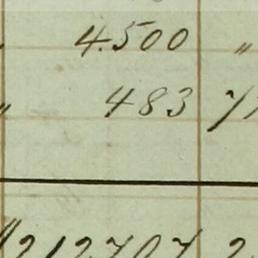 " 4.500 "
" 483 71
212707 2